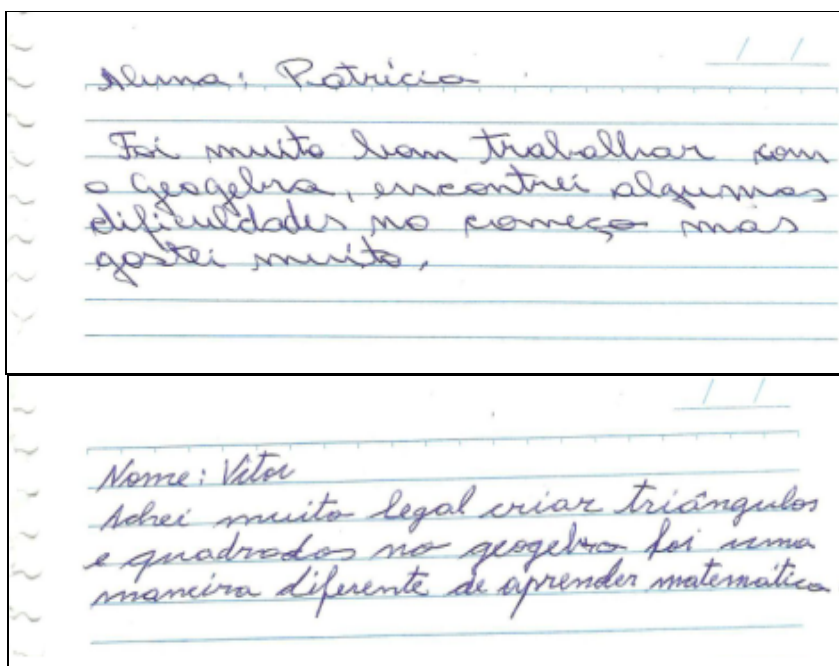 Aluna: Patrícia
Foi muito bom trabalhar com
o Geogebra, encontrei algumas
dificuldades no começo mas
gostei muito,
Nome: Vitor
Achei muito legal criar triângulos
e quadrados no geogebra foi uma
maneira diferente de aprender matemática